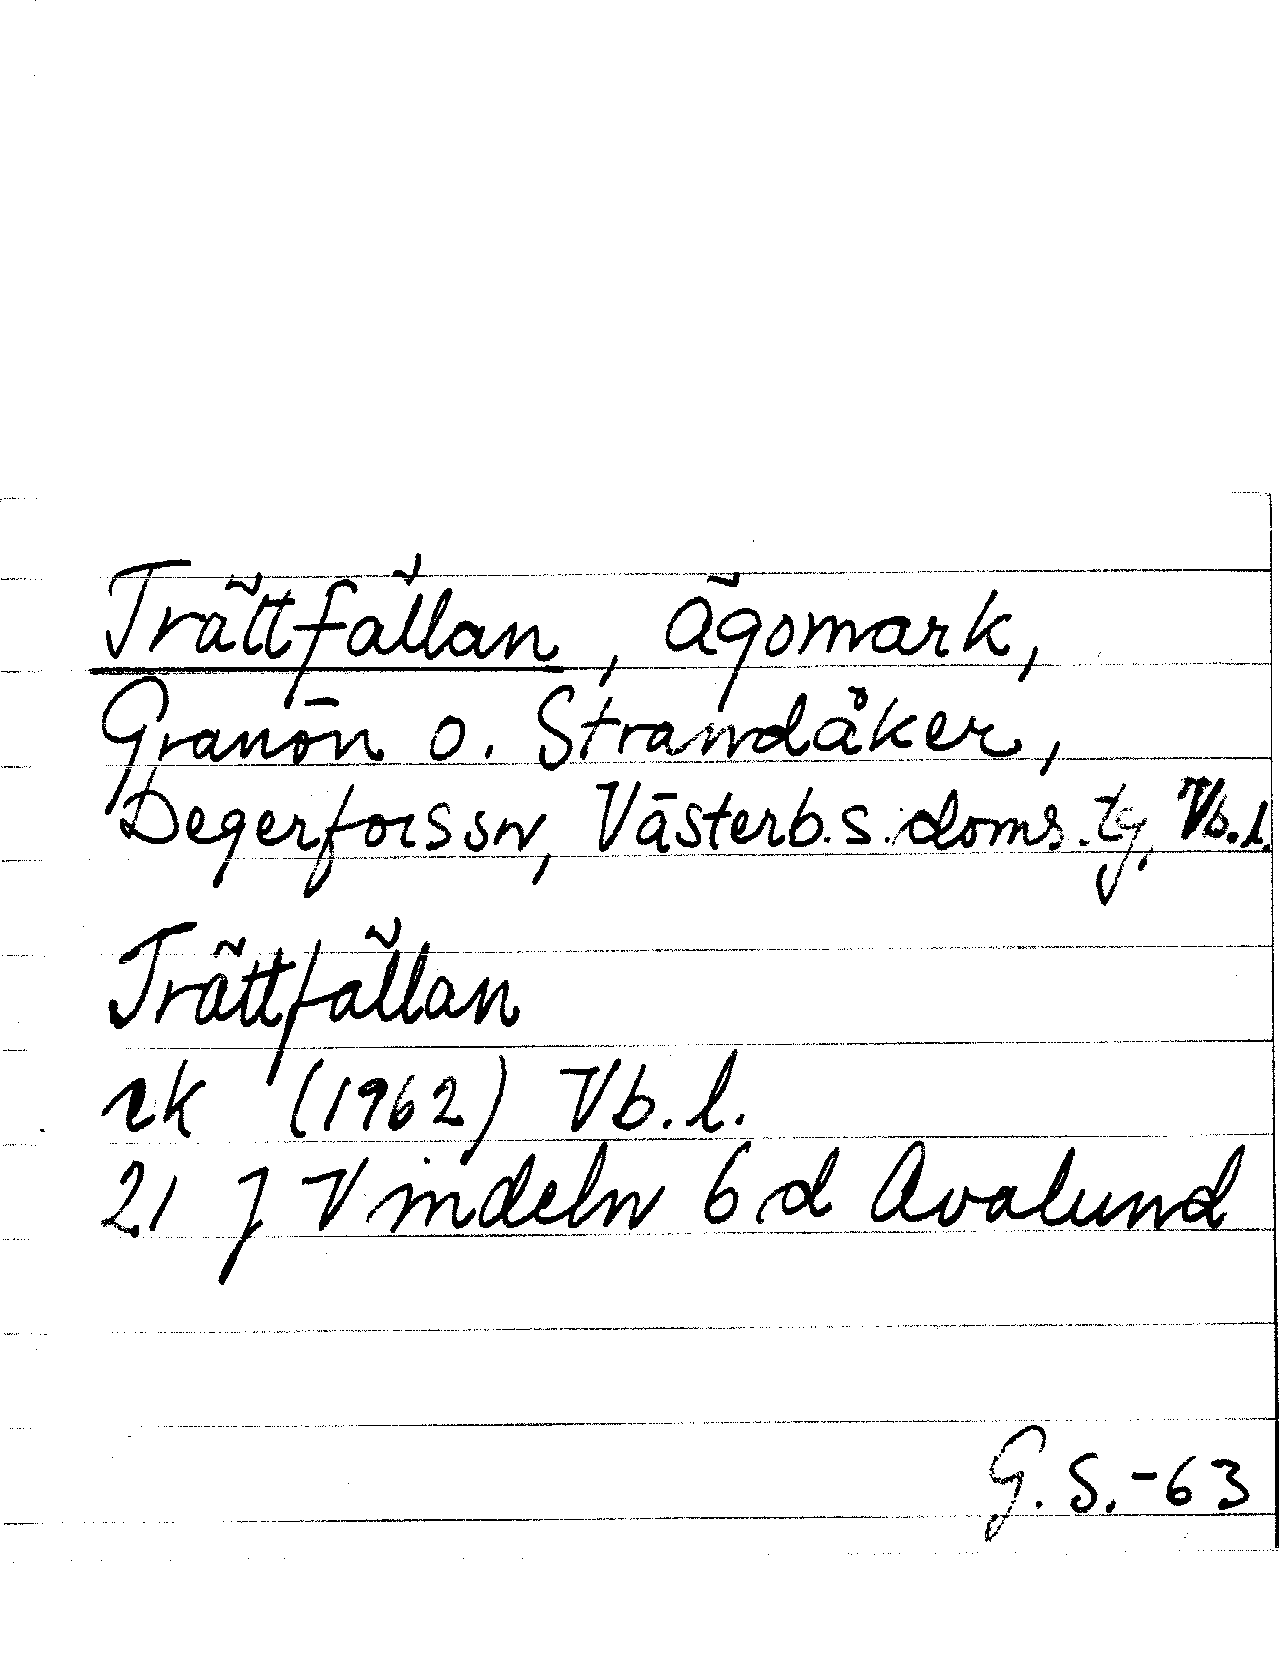 Trättfällan, ägomark,
Granön o. Strandåker,
Degerfors sn, Västerb.s. doms. tg, Vb.l.
Trättfällan
rk (1962) Vb.l.
21 J Vindeln 6 d Avalund
G. S. -63